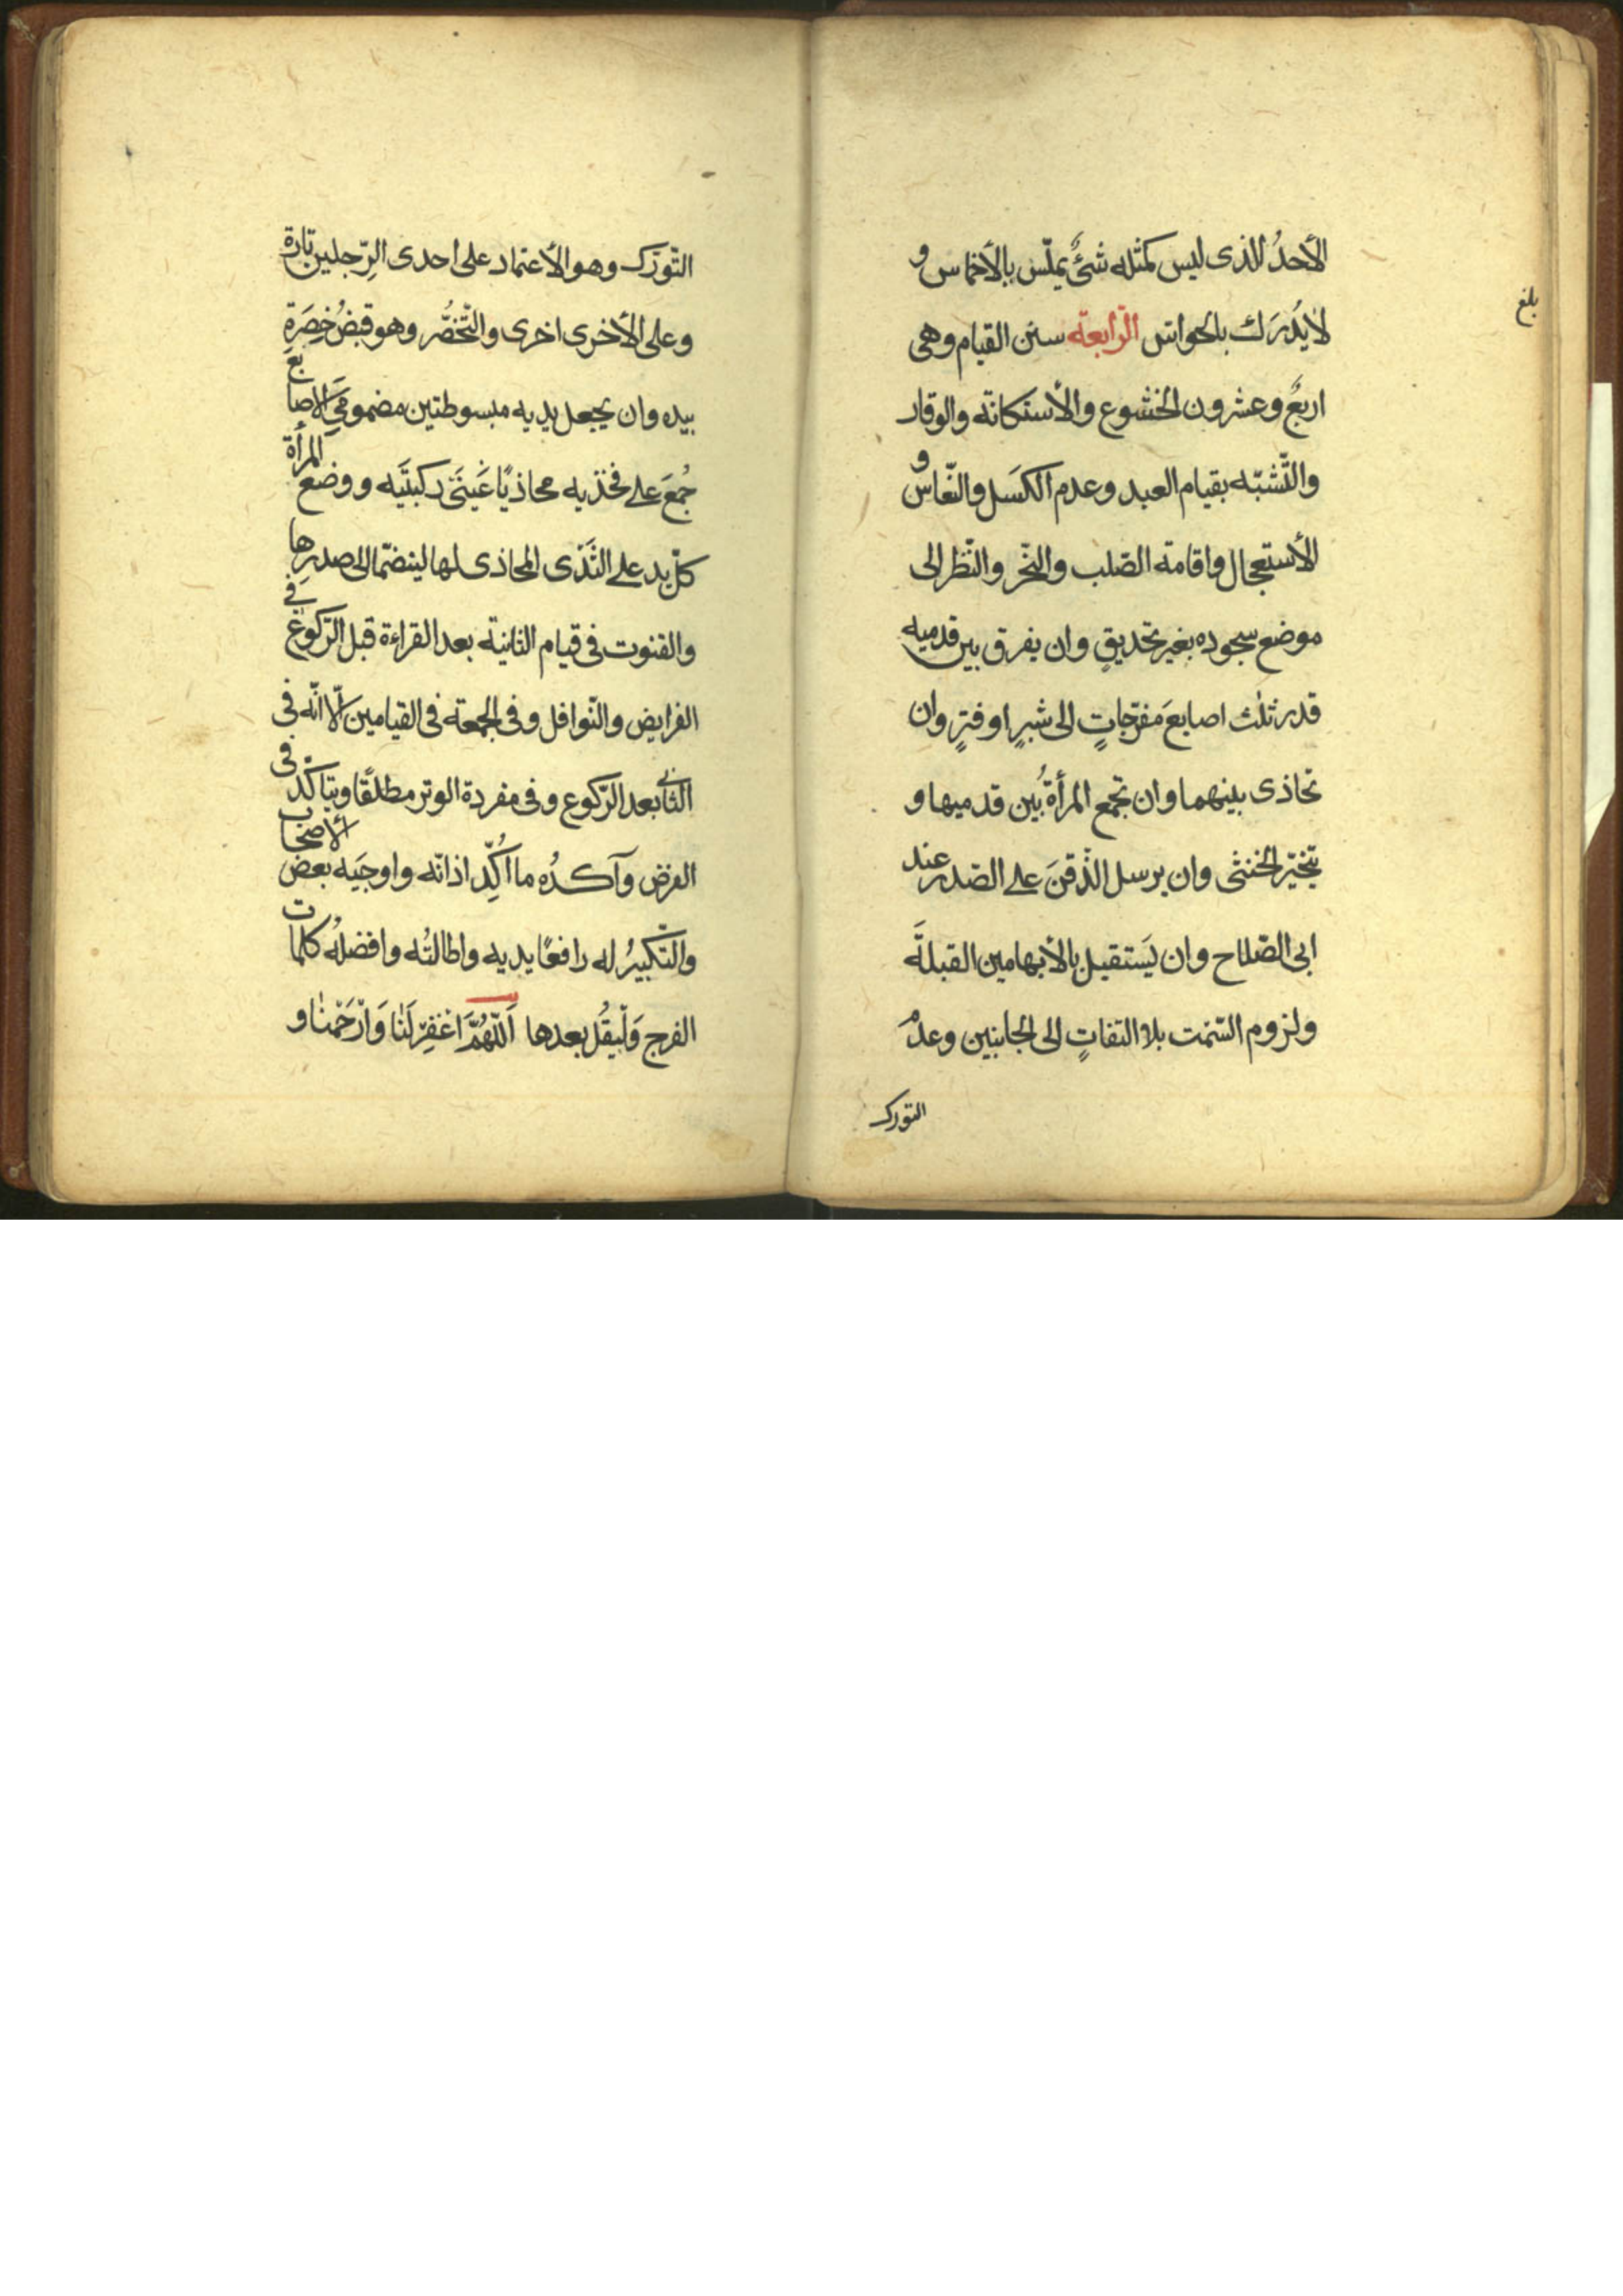 الأحدُ الذى ليس كمثله شئٌ يملّس بالأخماس و
لا يُدرَك بالحواسّ الرّابعة سنن القيام وهى
اربعٌ وعشرون الخشوع والأستكانة والوقار
والتّشبّه بقيام العبد وعدم الكسَل والنّعاس و
الأستعجال واقامة الصّلب والنّحر والنّظر الى
موضع سجوده بغير تحديقٍ وان يفرق بين قدميه
قدر ثلث اصابعَ مفرّجاتٍ الى شبرٍ او فترٍ وان
تحاذى بينهما وان تجمع المرأةُ بين قدميها و
يتخيّر الخنثى وان يرسل الذّقنَ على الصّدر عند
ابى الصّلاح وان يَستقبل بالأبهامين القبلةَ
ولزوم السّمت بلا التفاتٍ الى الجانبين وعدمُ
التورك
بلغ
التّورّك وهو الأعتماد على احدى الرِّجلين تارة
وعلى الأخرى اخرى والتّخصُّر وهو قبضُ خصَرةِ
بيده وان يجعل يديه مبسوطتين مضمومَتَى الاصابع
جُمعَ على فخذيه محاذيًا عَينَى ركبتَيه ووضع المرأة
كلّ يد على الثَدْى المحاذى لها لينضمّا الى صدرِها
والقنوت فى قيام الثانية بعد القراءة قبل الرّكوع فى
الفرايض والنّوافل وفى الجمعة فى القيامين الّا انّه فى
الثّانى بعد الرّكوع وفى مفردة الوتر مطلقًا ويتأكّد فى
الفرض وآكدُه ما اُكِّد اذانه واوجبَه بعض الأصحاب
والتّكبيرُ له رافعًا يديه واطالتُه وافضلُه كلمات
الفرج وَلْيقُل بعدها اَللّهُمَّ اغْفِرْ لَنا وَارْحَمْنا و